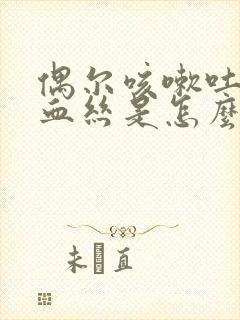 偶尔咳嗽吐
血丝是怎麼
未 直